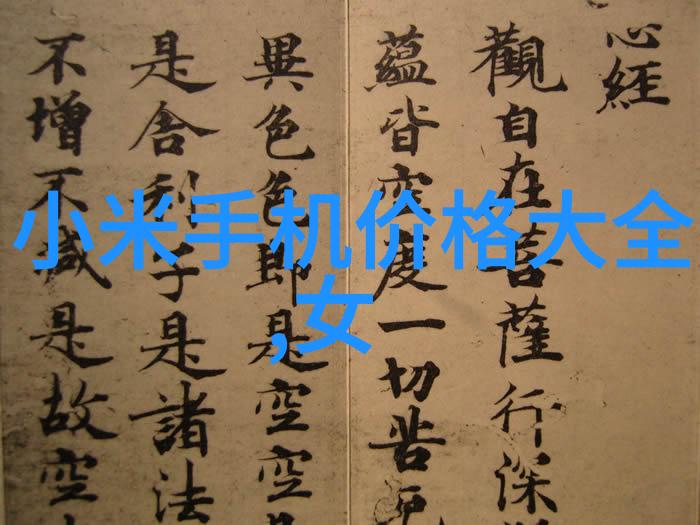 心經
觀自在菩薩行深
蘊皆空度一切苦厄
異色色即是空空
是舍利子是諸法
不增不減是故空
小米手机价格大全
,女